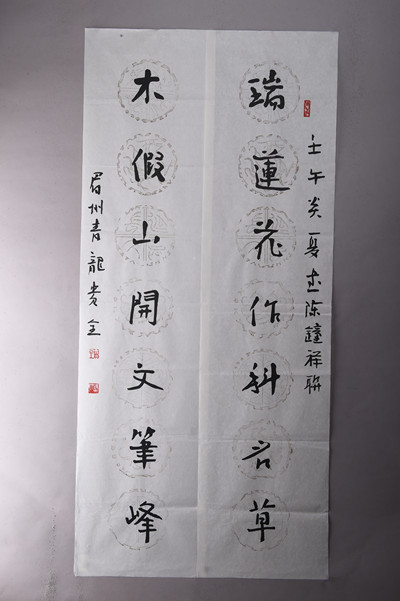 壬午炎夏書陈鐘祥聯
瑞蓮花作科名草
木假山開文筆峰
眉州青龍贵全